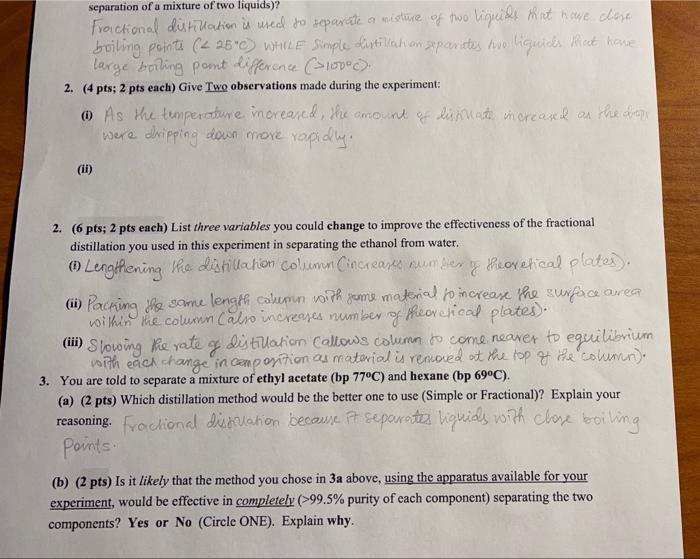 separation of a mixture of two liquids)?
Fractional distillation is used to separate a mixture of two liquids that have close
boiling points (< 25°C) WHILE Simple distillation separates two liquids that have
large boiling point difference (>100°C).
2. (4 pts; 2 pts each) Give Two observations made during the experiment:
(i) As the temperature increased, the amount of distillate increased as the drops
were dripping down more rapidly.
(ii)
2. (6 pts; 2 pts each) List three variables you could change to improve the effectiveness of the fractional
distillation you used in this experiment in separating the ethanol from water.
(i) Lengthening the distillation column (increases number of theoretical plates).
(ii) Packing the same length column with some material to increase the surface area
within the column (also increases number of theoretical plates).
(iii) Slowing the rate of distillation (allows column to come nearer to equilibrium
with each change in composition as material is removed at the top of the column).
3. You are told to separate a mixture of ethyl acetate (bp 77ºC) and hexane (bp 69ºC).
(a) (2 pts) Which distillation method would be the better one to use (Simple or Fractional)? Explain your
reasoning. Fractional distillation because it separates liquids with close boiling
points.
(b) (2 pts) Is it likely that the method you chose in 3a above, using the apparatus available for your
experiment, would be effective in completely (>99.5% purity of each component) separating the two
components? Yes or No (Circle ONE). Explain why.